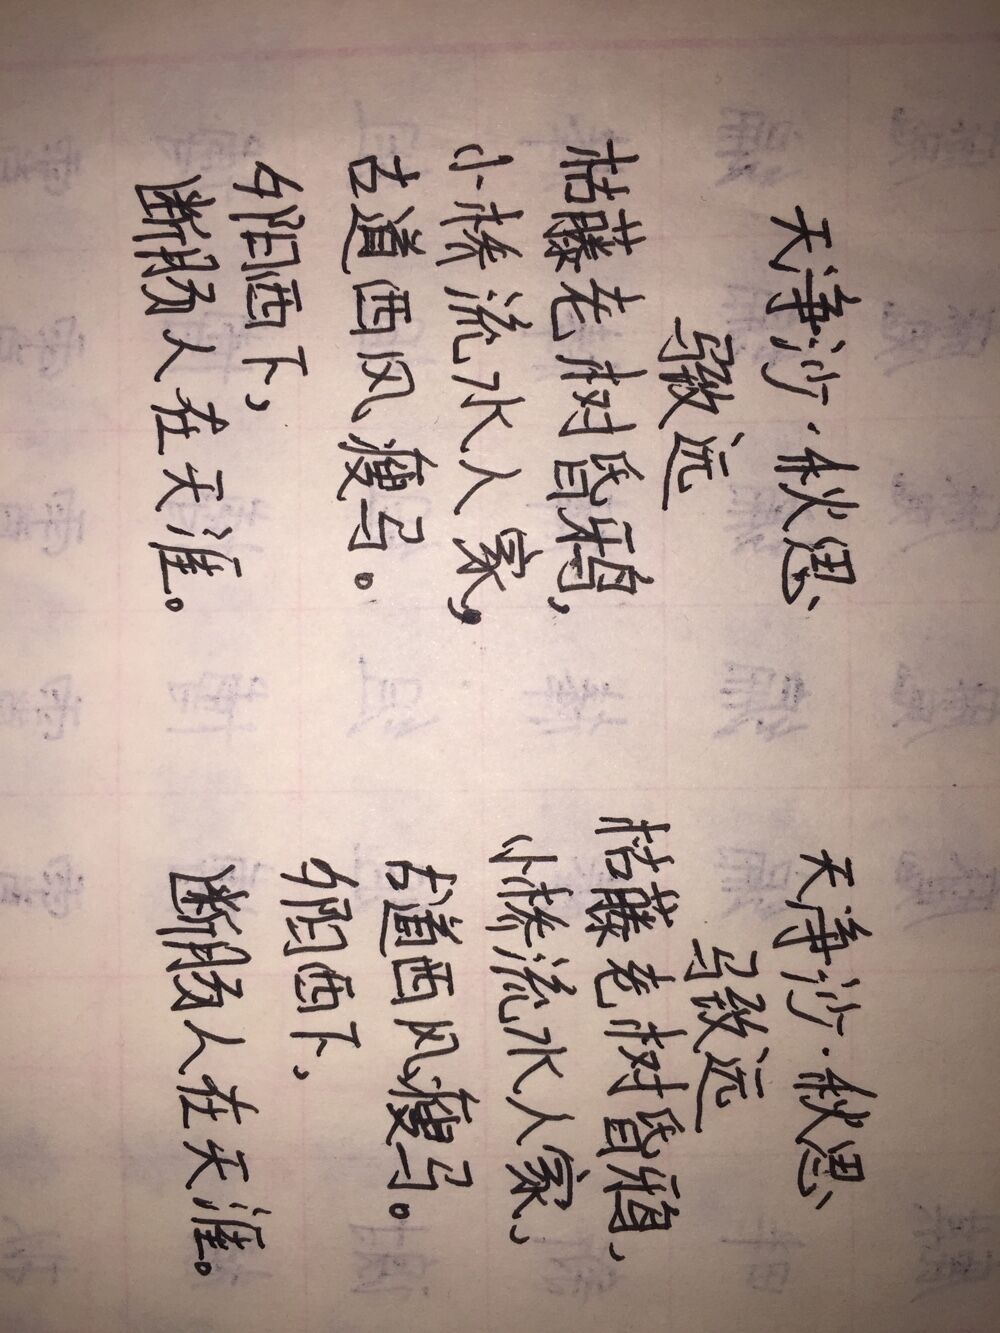 天净沙·秋思
马致远
枯藤老树昏鸦,
小桥流水人家,
古道西风瘦马。
夕阳西下,
断肠人在天涯。
天净沙·秋思
马致远
枯藤老树昏鸦,
小桥流水人家,
古道西风瘦马。
夕阳西下,
断肠人在天涯。